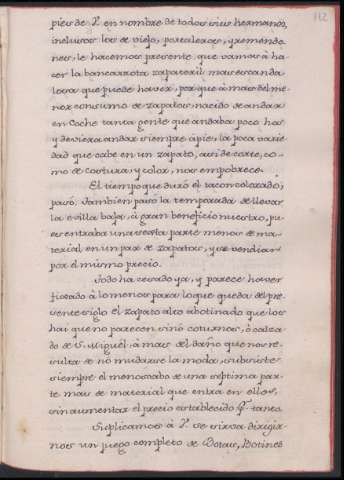 112
pies de V. en nombre de todos sus hermanos,
inclusos los de viejo, portaleros, y remendo
nes, le hacemos presente que vamos à ha
cer la bancarrota zapateril mas escanda
losa que puede haver, porque à mas del me
nor consumo de zapatos nacido de andar
en coche tanta gente que andaba poco hà,
y deviera andar siempre à pie, la poca varie
dad que cabe en un zapato, asi de corte, co
mo de costura, y color, nos empobrece.
El tiempo que durò el tacon colorado,
pasò. Tambien pasò la temporada de llevar
la evilla baja, à gran beneficio nuestro, pu
es entraba una sesta parte menos de ma
terial en un par de zapatos, y se vendian
por el mismo precio.
Todo ha cesado ya, y parece haver
fixado à lo menos para lo que queda del pre
sente siglo el zapato alto abotinado que los
hai que no parecen sinò coturnos, ò calza
do de S. Miguel; à mas del daño que nos re
sulta de nò mudarse la moda, subsiste
siempre el menoscabo de una septima par
te mas de material que entra en ellos,
sin aumentar el precio establecido; tanto
Suplicamos à V. se sirva dirigir
nos un juego completo de Botas, Botines